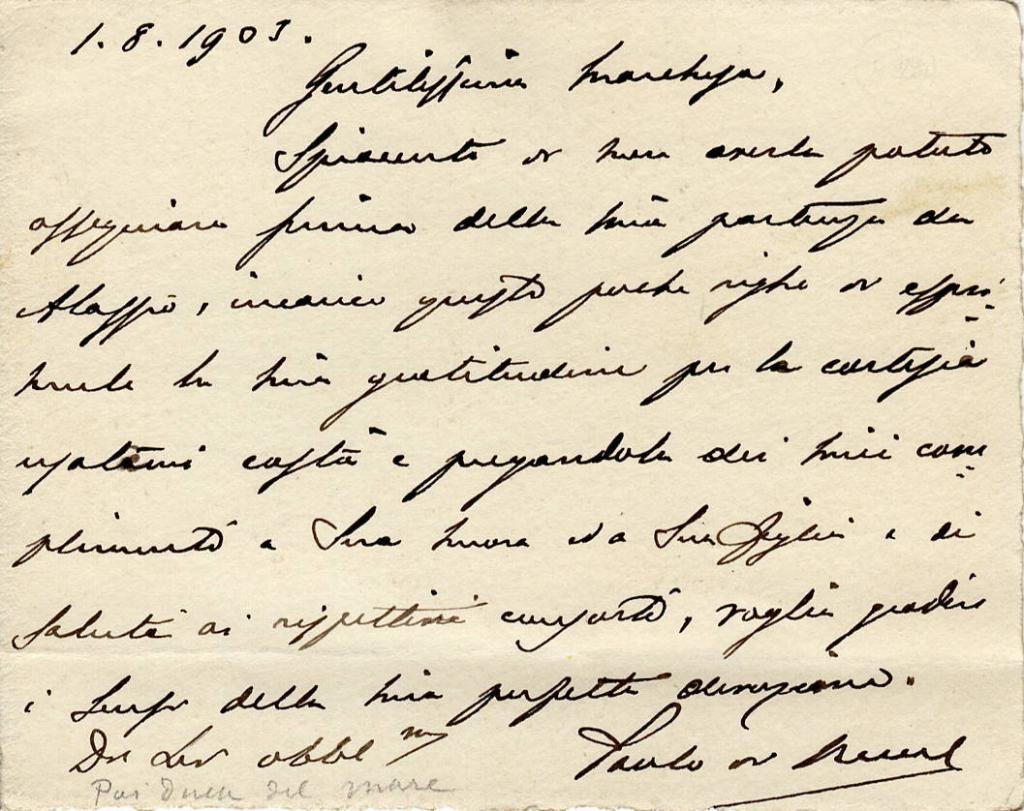 1.8.1903.
Gentilissima Marchesa,
Spiacente di non averla potuto
ossequiare prima della mia partenza da
Alassio, incarico queste poche righe di espri-
merle la mia gratitudine per la cortesia
usatami costà e pregandola dei miei com-
plimenti a Sua nuora ed a Sua figlia e di
saluti ai rispettivi consorti, voglia gradire
i sensi della mia perfetta devozione.
Di Lei obbl mo
Paolo di Revel
Poi Duca del mare